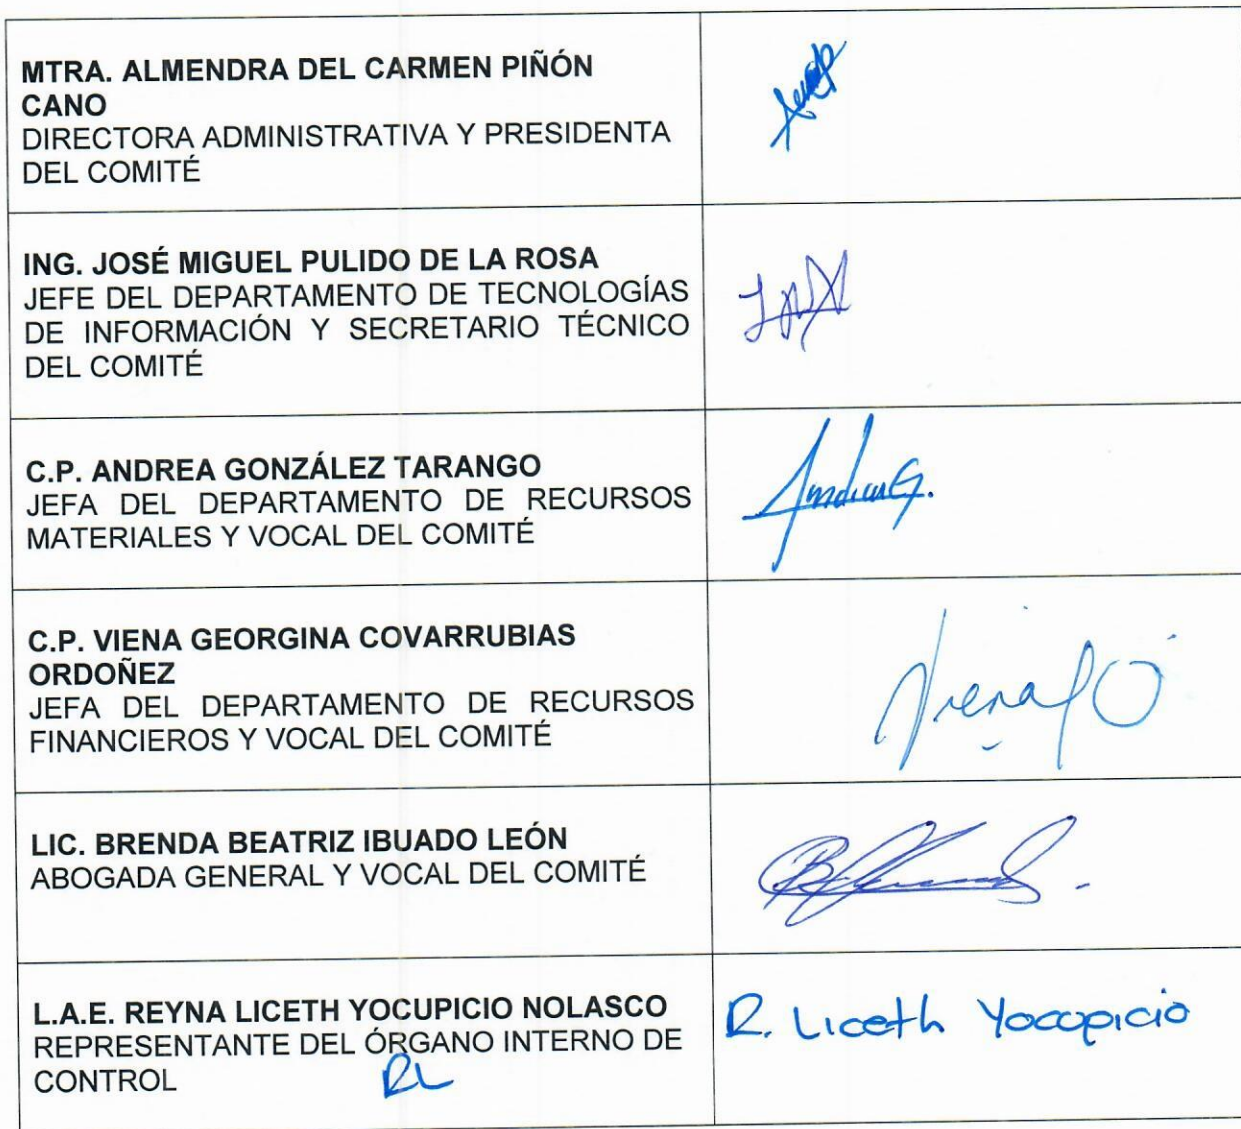 MTRA. ALMENDRA DEL CARMEN PIÑÓN
CANO
DIRECTORA ADMINISTRATIVA Y PRESIDENTA
DEL COMITÉ
ING. JOSÉ MIGUEL PULIDO DE LA ROSA
JEFE DEL DEPARTAMENTO DE TECNOLOGÍAS
DE INFORMACIÓN Y SECRETARIO TÉCNICO
DEL COMITÉ
C.P. ANDREA GONZÁLEZ TARANGO
JEFA DEL DEPARTAMENTO DE RECURSOS
MATERIALES Y VOCAL DEL COMITÉ
C.P. VIENA GEORGINA COVARRUBIAS
ORDOÑEZ
JEFA DEL DEPARTAMENTO DE RECURSOS
FINANCIEROS Y VOCAL DEL COMITÉ
LIC. BRENDA BEATRIZ IBUADO LEÓN
ABOGADA GENERAL Y VOCAL DEL COMITÉ
L.A.E. REYNA LICETH YOCUPICIO NOLASCO
REPRESENTANTE DEL ÓRGANO INTERNO DE
CONTROL
RL
R. Liceth Yocupicio